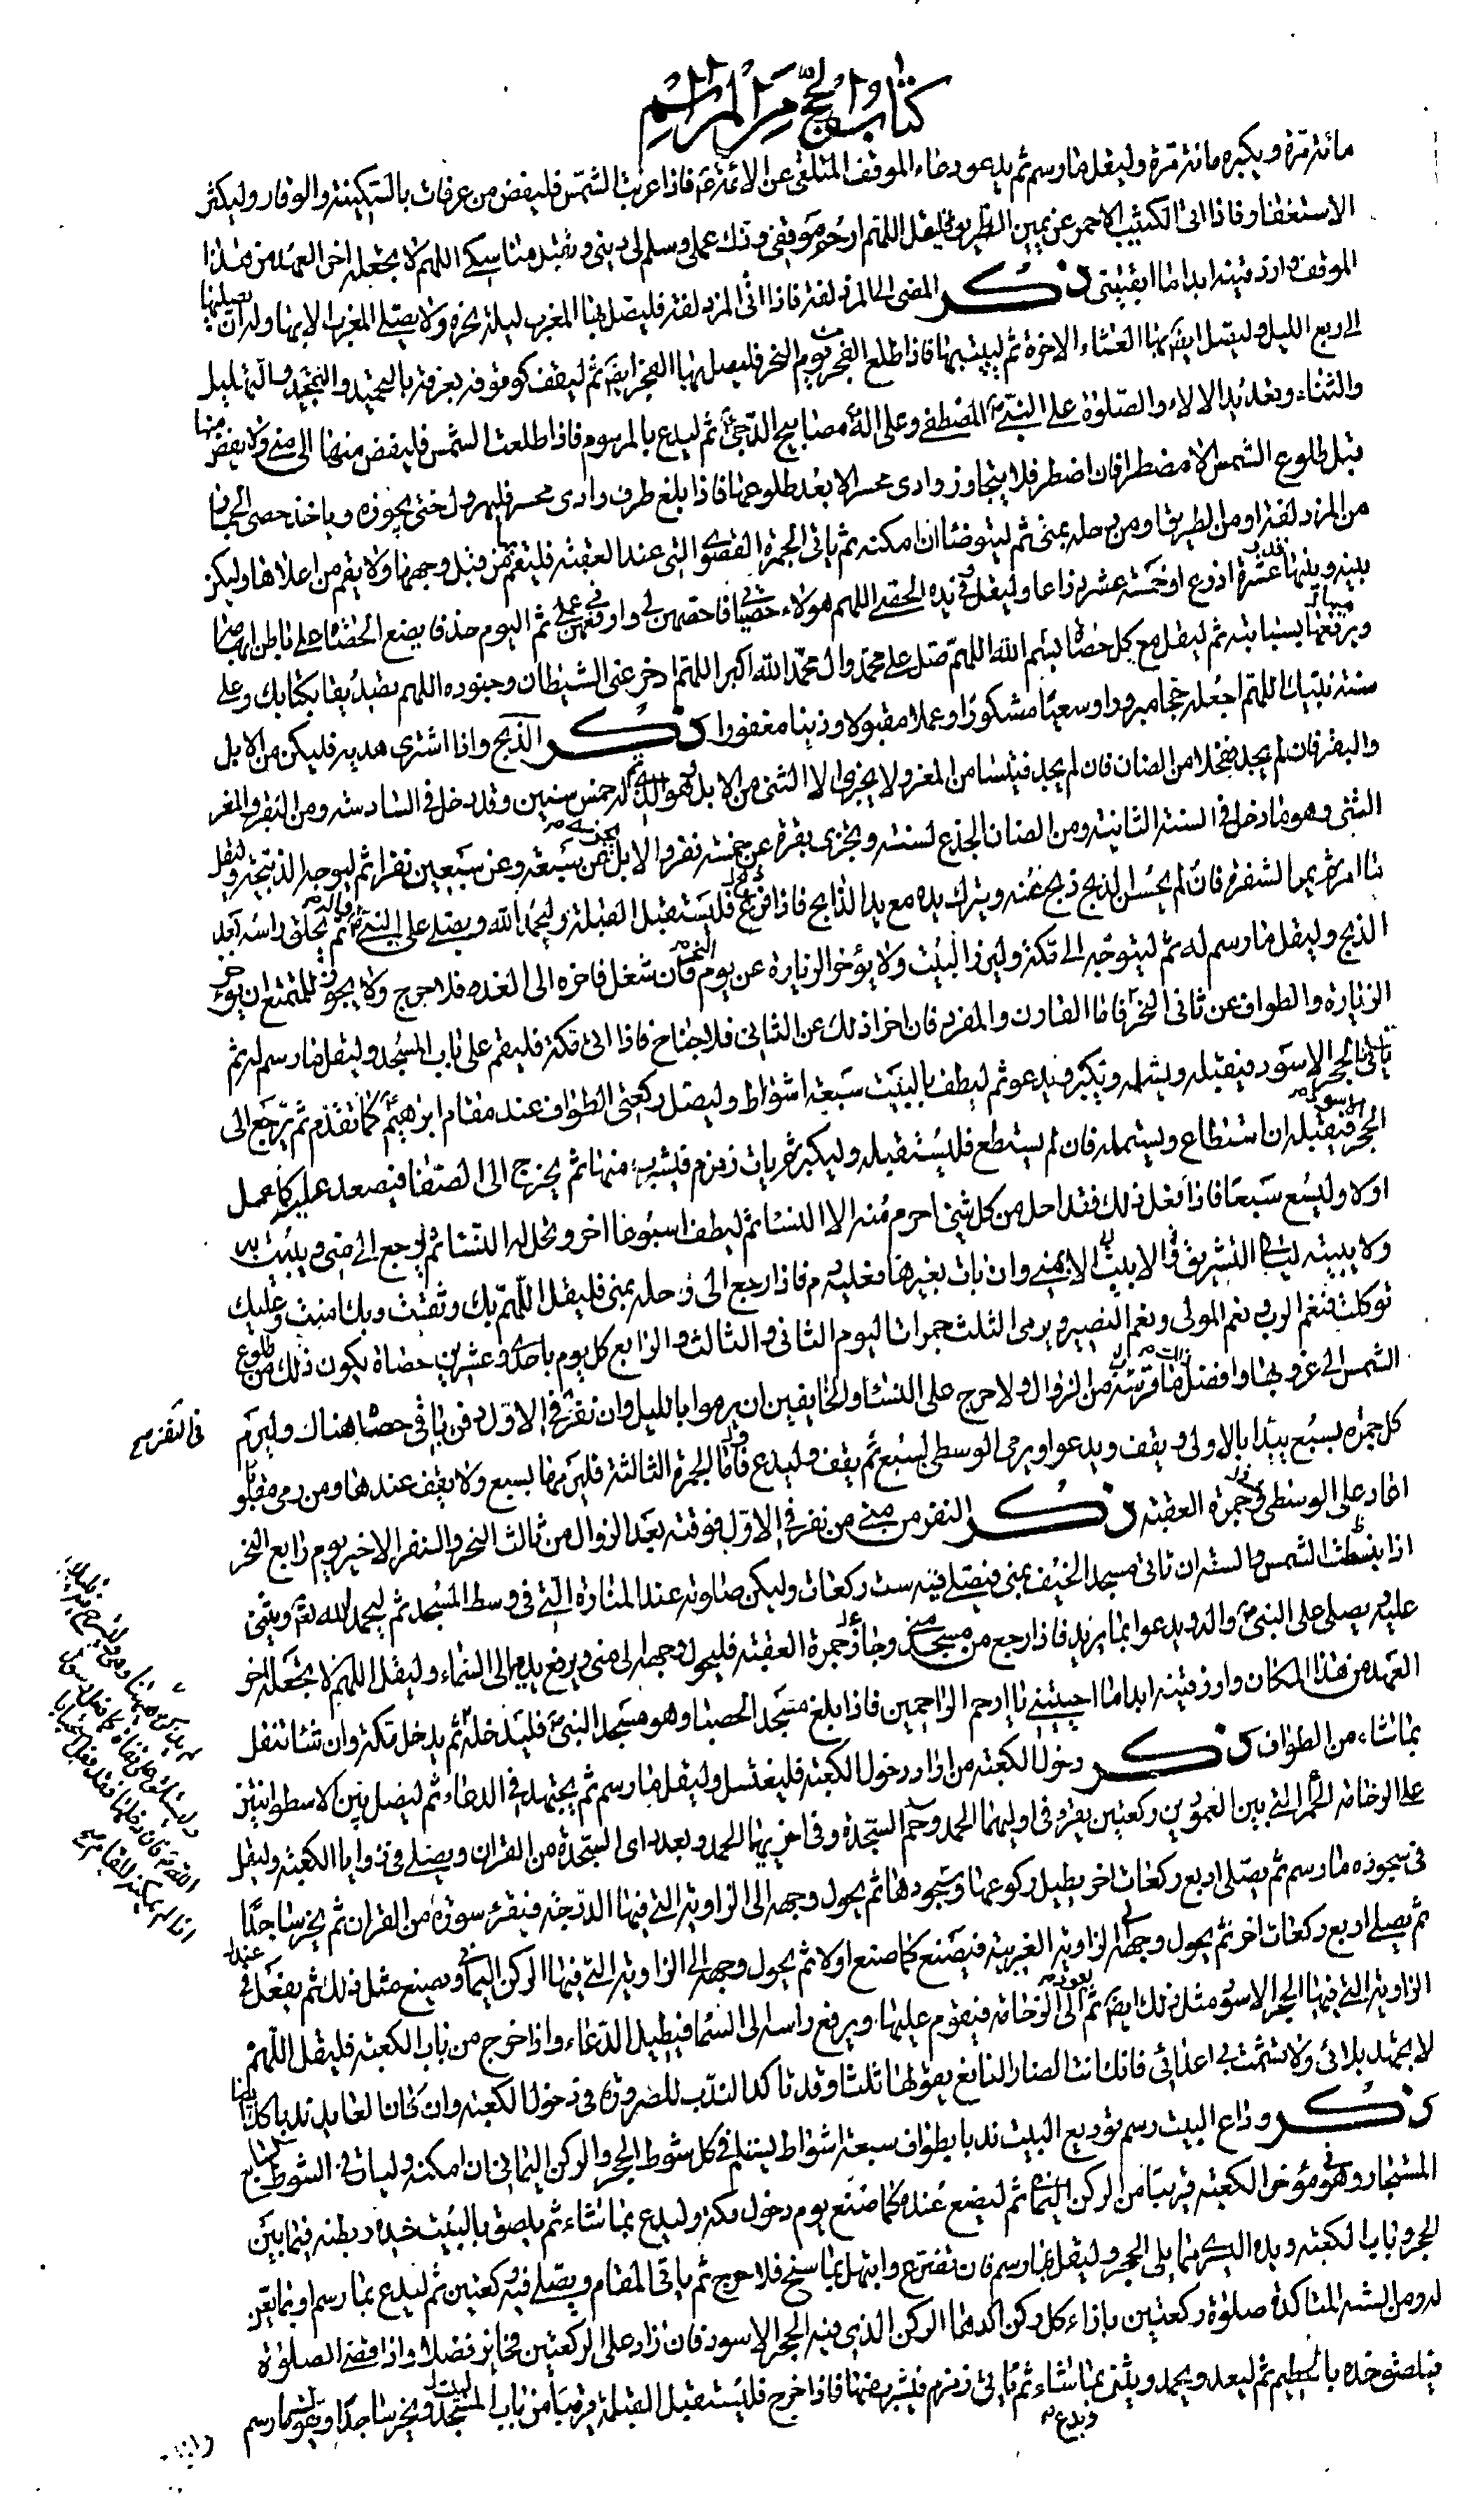 كتاب الحج من المراسم
مائة مرة ويكبره مائة مرة وليقل ما رسم ثم يدعو دعاء الموقف المتلقى عن الائمة ع فاذا غربت الشمس فليفض من عرفات بالسكينة والوقار وليكثر
الاستغفار فاذا اتى الكثيب الاحمر عن يمين الطريق فليقل اللهم ارحم موقفى وزك عملى وسلم لى دينى وتقبل مناسكى اللهم لا تجعله اخر العهد من هذا
الموقف وارزقنيه ابدا ما ابقيتنى ذكر المضى الى المزدلفة فاذا اتى المزدلفة فليصل بها المغرب ليلة نحره ولا يصلى المغرب الا بها وله ان يصليها
الى ربع الليل وليصل ايضا بها العشاء الاخرة ثم ليبت بها فاذا طلع الفجر يوم النحر فليصل بها الفجر ايضا ثم ليقف كوقوفه بعرفة بالتحميد والتمجيد والتهليل
والثناء وتعديد الالاء والصلوة على النبى المصطفى وعلى اله مصابيح الدجى ثم ليدع بالمرسوم فاذا طلعت الشمس فليفض منها الى منى ولا يفض منها
قبل طلوع الشمس الا مضطرا فان اضطر فلا يتجاوز وادى محسر الا بعد طلوعها فاذا بلغ طرف وادى محسر فليهرول حتى يجوزه وياخذ حصى الجمار
من المزدلفة او من الطريق او من رحله بمنى ثم ليتوضأ ان امكنه ثم ياتى الجمرة القصوى التى عند العقبة فليقم من قبل وجهها ولا يقم من اعلاها وليكن
بينه وبينها قدر عشرة اذرع او خمسة عشر ذراعا وليقل وفى يده الحصى اللهم هولاء حصياتى فاحصهن لى وارفعهن فى عملى ثم اليوم حذفا يضع الحصاة على باطن ابهامه
ويرفعها بسبابته ثم ليقل مع كل حصاة بسم الله اللهم صل على محمد وال محمد الله اكبر اللهم ادحر عنى الشيطان وجنوده اللهم تصديقا بكتابك وعلى
سنة نبيك اللهم اجعله حجا مبرورا وسعيا مشكورا وعملا مقبولا وذنبا مغفورا ذكر الذبح واذا اشترى هديه فليكن من الابل
والبقر فان لم يجد فحلا من الضان فان لم يجد فتيسا من المعز ولا يجزى الا الثنى من الابل وهو الذى له خمس سنين وقد دخل فى السادسة ومن البقر والمعز
الثنى وهو ما دخل فى السنة الثانية ومن الضان الجذع لسنة وتجزى بقرة عن خمسة نفر والابل تجزى عن سبعة وعن سبعين نفرا ثم ليوجه الذبيحة وليقل
ما امر ويمر الشفرة فان لم يحسن الذبح ذبح عنه ويترك يده مع يد الذابح فاذا فرغ فليستقبل القبلة وليحمد الله ويصلى على النبى واله ثم يحلق راسه بعد
الذبح وليقل ما رسم له ثم ليتوجه الى مكة وليزر البيت ولا يؤخر الزيارة عن يوم النحر فان شغل فاخره الى الغد فلا حرج ولا يجوز للمتمتع ان يؤخر
الزيارة والطواف عن ثانى النحر فاما القارن والمفرد فان اخر ذلك عن الثانى فلا جناح فاذا اتى مكة فليقم على باب المسجد وليقل ما رسم له ثم
ياتى الحجر الاسود فيقبله ويشمله ويكبر ويدعو ثم ليطف بالبيت سبعة اشواط وليصل ركعتى الطواف عند مقام ابرهيم كما تقدم ثم يرجع الى
الحجر الاسود فيقبله ان استطاع ويستلمه فان لم يستطع فليستقبله وليكبر ثم يات زمزم فليشرب منها ثم يخرج الى الصفا فيصعد عليه كما عمل
اولا وليسع سبعا فاذا فعل ذلك فقد احل من كل شئ احرم منه الا النساء ثم ليطف اسبوعا اخر وتحل له النساء ثم ليرجع الى منى ويبيت بها
ولا يبيت ليالى التشريق الا بمنى وان بات بغيرها فعليه دم فاذا رجع الى رحله بمنى فليقل اللهم بك وثقت وبك امنت وعليك
توكلت فنعم الرب ونعم المولى ونعم النصير ويرمى الثلث جمرات اليوم الثانى والثالث والرابع كل يوم باحدى وعشرين حصاة يكون ذلك من طلوع
الشمس الى غروبها وافضل ذلك ما قرب من الزوال ولا حرج على النساء والخايفين ان يرموا بالليل وان نفر فى الاول دفن باقى حصاه هناك وليرم
فى النفر صح
كل جمرة بسبع يبدأ بالاولى ويقف ويدعو ويرمى الوسطى بسبع ثم يقف وليدع فاما الجمرة الثالثة فليرمها بسبع ولا يقف عندها ومن رمى مقلوبا
اعاد على الوسطى وجمرة العقبة ذكر النفر من منى من نفر فى الاول فوقته بعد الزوال من ثالث النحر والنفر الاخير يوم رابع النحر
اذا انبسطت الشمس والسنة ان ياتى مسجد الخيف بمنى فيصلى فيه ست ركعات وليكن صلوته عند المنارة التى فى وسط المسجد ثم ليحمد الله تعالى ويثنى
عليه ويصلى على النبى واله ويدعو بما يريد فاذا رجع من مسجد منى وجاوز جمرة العقبة فليحول وجهه الى منى ويرفع يديه الى السماء وليقل اللهم لا تجعله اخر
العهد من هذا المكان وارزقنيه ابدا ما احييتنى يا ارحم الراحمين فاذا بلغ مسجد الحصباء وهو مسجد النبى فليدخله ثم يدخل مكة وان شاء تنفل
بما شاء من الطواف ذكر دخول الكعبة من اراد دخول الكعبة فليغتسل وليقل ما رسم ثم يجتهد فى الدعاء ثم ليصل بين الاسطوانتين
على الرخامة الحمراء التى بين العمودين ركعتين يقرء فى اوليهما الحمد وحم السجدة وفى اخريهما الحمد وبعدد اى السجدة من القران ويصلى فى زوايا الكعبة وليقل
فى سجوده ما رسم ثم يصلى اربع ركعات اخر يطيل ركوعها وسجودها ثم يحول وجهه الى الزاوية التى فيها الدرجة فيقرء سورة من القران ثم يخر ساجدا
ثم يصلى اربع ركعات اخر ثم يحول وجهه الى الزاوية الغربية فيصنع كما صنع اولا ثم يحول وجهه الى الزاوية التى فيها الركن اليمانى ويصنع مثل ذلك ثم يفعل عند
الزاوية التى فيها الحجر الاسود مثل ذلك ايضا ثم يعود الى الرخامة فيقوم عليها ويرفع راسه الى السماء فيطيل الدعاء واذا خرج من باب الكعبة فليقل اللهم
لا تجهد بلائى ولا تشمت بى اعدائى فانك انت الضار النافع يقولها ثلثا وقد تاكد الندب للصرورة فى دخول الكعبة وان كان لعايد ندبا كذلك ايضا
ذكر وداع البيت رسم توديع البيت ندبا بطواف سبعة اشواط ليستلم فى كل شوط الحجر والركن اليمانى ان امكنه وليات فى الشوط السابع
المستجار وهو فى مؤخر الكعبة قريبا من الركن اليمانى ثم ليصنع عنده كما صنع يوم دخول مكة وليدع بما شاء ثم يلصق بالبيت خده وبطنه فيما بين
الحجر وباب الكعبة ويده اليسرى مما يلى الحجر وليقل ما رسم فان تضرع وابتهل بما سنح فلا حرج ثم ياتى المقام ويصلى فيه ركعتين ثم ليدع بما رسم او بما يعن
له ومن السنة المتاكدة صلوة ركعتين بازاء كل ركن اكدها الركن الذى فيه الحجر الاسود فان زاد على الركعتين فحائز فضلا واذا قضى الصلوة
فيلصق خده بالحطيم ثم ليعد ويحمد ويثنى بما شاء ثم ياتى زمزم فليشرب منها فاذا خرج فليستقبل القبلة قريبا من باب المسجد ويخر ساجدا ويقول ما رسم
ويدع